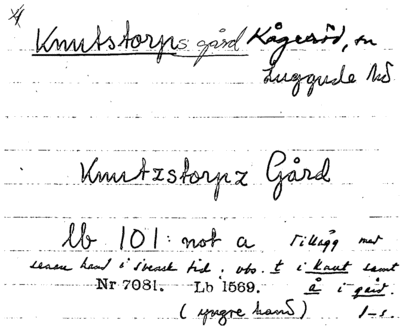 Knutstorps gård Kågeröd, sn
Luggude hd
Knutzstorpz Gård
lb 101: not a Tillägg med
senare hand i svensk tid, obs. t i Knut samt
Nr 7081. Lb 1569. å i gård.
(yngre hand) 1-s.